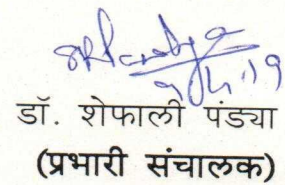 डॉ. शेफाली पंड्या
(प्रभारी संचालक)